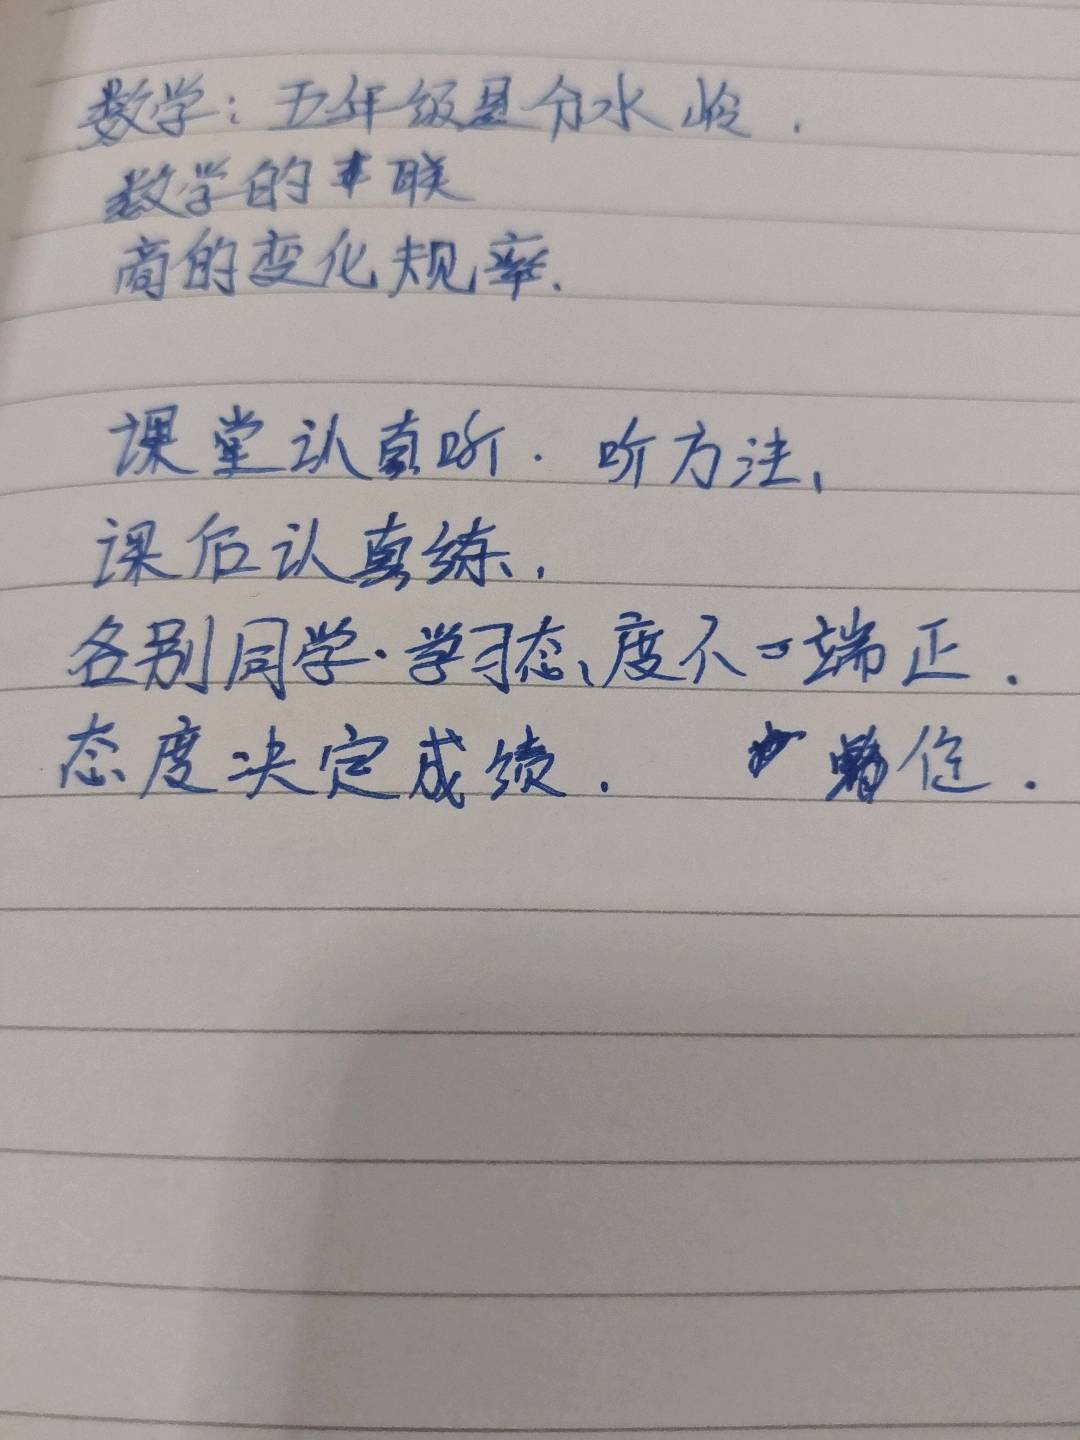 数学：五年级是分水岭.
数学的 联
商的变化规率.
课堂认真听. 听方法、
课后认真练.
各别同学.学习态、度不 端正.
态度决定成绩. 位.